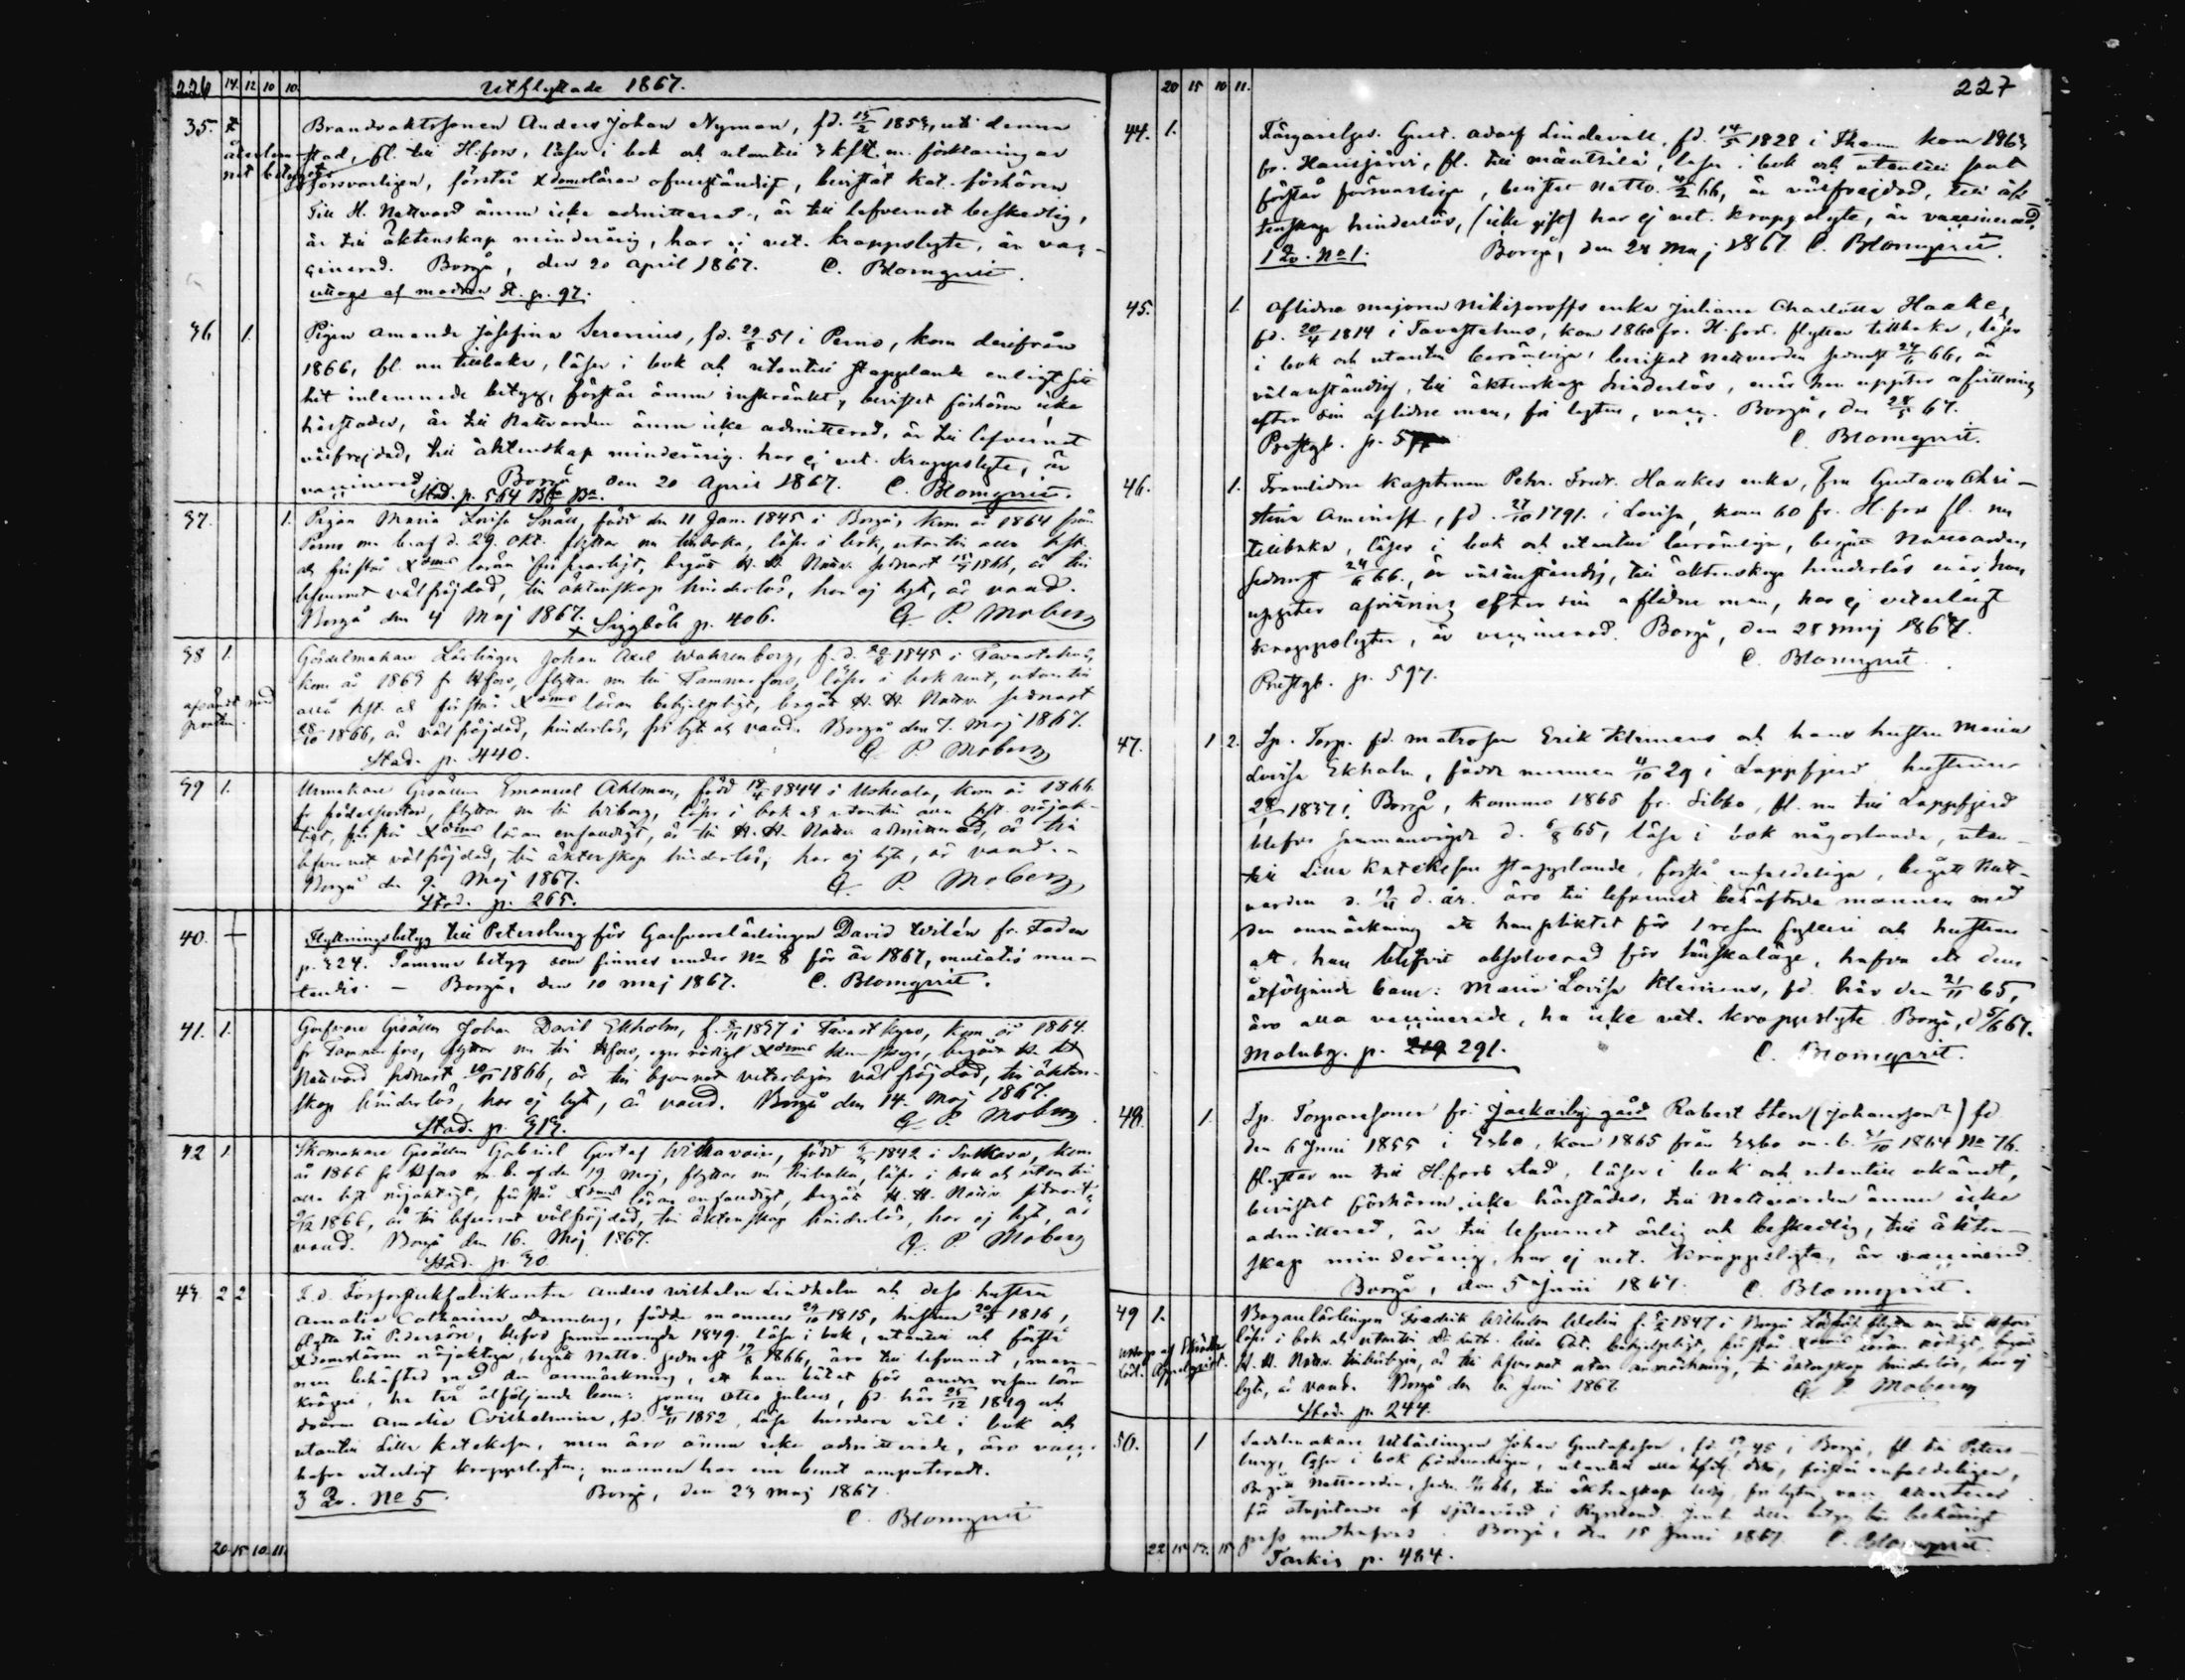 226 14. 12 10 10. Utflyttade 1867.
35. Brandvaktssonen Anders Johan Nyman, fd. 15/2 1853, uti denna
stad, fl. till H:fors, läser i bok och utantill 3 kfst. m. förklaring
försvarligen, förstår Xdomsläran ofullständigt, bevistat kat. förhören
Till H. Nattvard ännu icke admitterad, är till lefvernet beskedlig,
är till äktenskap minderårig, har ej vet. kroppslyte, är vac-
cinerad. Borgå, den 20 April 1867. C. Blomqvist.
uttogs af modren St. p. 97.
36 1. Pigan Amanda Josefina Serenius, fd. 29/8 51 i Perno, kom derifrån
1866, fl. nu tillbaka, läser i bok och utantill stapplande enligt sitt
hit inlemnade betyg, förstår ännu inskränkt, bevistat förhören icke
härstädes, är till Nattvarden ännu icke admitterad, är till lefvernet
välfrejdad, till äktenskap minderårig. har ej vet. kroppslyte, är
vaccinerad. Borgå den 20 April 1867. C. Blomqvist.
Stad. p. 564
37. 1. Pigan Maria Lovisa Snäll, född den 11 Jan. 1845 i Borgå, kom år 1864 från
Perno d. 29. Okt. flyttar nu tillbaka, läser i bok, utantill alla hfst.
och förstår Xdoms läran försvarligt, begått H. H. Nattv. sednast 1866, är till
lefvernet välfräjdad, till äktenskap hinderlös, har ej lyte, är vaccd.
Borgå den 4 Maj 1867. Siggböle p. 406. G. P. Moberg
38 1. Gördelmakare Lärlingen Johan Axel Wahrenberg, f. d. 1845 i Tavastehus,
kom år 1865 fr Hfors, flyttar nu till Tammerfors, läser i bok rent, utantill
alla hfst. och förstår Xdoms läran behjelpligt, begått H. H. Nattv. sednast
28/10 1866, är välfräjdad, hinderlös, fri lyte och vaccd. Borgå den 7. Maj 1867.
Stad. p. 440. G. P. Moberg
afsändt med
posten.
39 1. Urmakare Gesällen Emanuel Ahlman, född 1844 i Uskeala, kom år 1866
fr födelseorten, flyttar nu till Wiborg, läser i bok och utantill alla hfst. nöjak-
tigt, förstår Xdoms läran enfaldigt, är till H. H. Nattv admitterad, är till
lefvernet välfräjdad, till äktenskap hinderlös, har ej lyte, är vaccd.
Borgå den 9. Maj 1867. G. P. Moberg
Stad. p. 265.
40. Flyttningsbetyg till Petersburg för Garfvarelärlingen David Wilén fr. Staden
p. 324. Samma betyg som finnes under No 8 för år 1867, mutatis mu-
tandis. - Borgå, den 10 maj 1867. C. Blomqvist.
41. 1. Garfvare Gesällen Johan David Ekholm, f. 1837 i Tavastkyro, kom år 1864
fr Tammerfors, flyttar nu till Hfors, eger nödigt Xdoms kunskap, begått H. H.
Nattvard sednast 1866, är till lefvernet veterligen välfräjdad, till äkten-
skap hinderlös, har ej lyte, är vaccd. Borgå den 14. Maj 1867.
Stad. p. 313. G. P. Moberg
42 1. Skomakare Gesällen Gabriel Gustaf Wikavain, född 1842 i Sulkava, kom
år 1866 fr Hfors m. b. af den 19 maj, flyttar nu tillbaka, läser i bok och utantill
alla hfst nöjaktigt, förstår Xdoms läran enfaldigt, begått H. H. Nattv. sednast
1866, är till lefvernet välfräjdad, till äktenskap hinderlös, har ej lyte, är
vaccd. Borgå den 16. Maj 1867. G. P. Moberg
Stad. p. 30
43. 2 2 F. d. Anders Wilhelm Lindholm och dess hustru
Amalia Catharina Dannberg, födda mannen 1815, hustrun 1816,
flytta till Pedersöre, blefvo sammanvigda 1849. läsa i bok, utantill och förstå
Xdomsläran nöjaktigt, begått Nattv. sednast 1866, äro till lefvernet, man-
nen behäftad med den anmärkning, att han bötat för andra resan
krögeri, ha två åtföljande barn: sonen Otto Julius, fd. här 25/12 1849 och
dottren Amalia Wilhelmina, fd. 1852, läsa hvardera väl i bok och
utantill Lilla katekesen, men äro ännu icke admitterade, äro vacc.
hafva veterligt kroppslyten; mannen har ena benet amputeradt.
3 Qv. No 5. Borgå, den 23 maj 1867
C. Blomqvist
20. 15. 10. 11.
20 15 10 11. 227
44. 1. Gust. Adolf Lindevall, fd. 14/5 1828 i kom 1863
fr. Hausjärvi, fl. till Mäntsälä, läser i bok och utantill samt
förstår försvarligen, bevistat Nattv. 66, är välfrejdad, till äk-
tenskap hinderlös, (icke gift) har ej vet. kroppslyte, är vaccinerad.
1 Qv. No 1. Borgå, den 28 Maj 1867 C. Blomqvist
45. 1. Aflidne majoren Nikiforoffs enka Juliana Charlotta Haake,
fd. 20/4 1814 i Tavastehus, kom 1860 fr. H.fors. flyttar tillbaka, läser
i bok och utantill berömligen, bevistat nattvarden sednast 24/6 66, är
välanständig, till äktenskap hinderlös, enär hon uppter afvittring
efter sin aflidne man, fri lyten, vacc. Borgå, den 28/5 67.
Prestgb. p. C. Blomqvist.
46. 1. Framlidne kaptenen Pehr. Fredr. Haakes enka, Fru Gustava Chri-
stina Amineff, fd. 27/10 1791. i Lovisa, kom 60 fr. H.fors fl. nu
tillbaka, läser i bok och utantill berömligen, begått Nattvarden
sednast 24/6 66., är välanständig, till äktenskap hinderlös enär hon
uppter afvittring efter sin aflidne man, har ej veterligt
kroppslyten, är vaccinerad. Borgå, den 28 maj 1867.
C. Blomqvist
Prestgb. p. 597.
47. 1 2. Sp. Torp. fd. matrosen Erik Klemens och hans hustru Maria
Lovisa Ekholm, födda mannen 4/10 29 i Lappfjerd hustrun
1837 i Borgå, kommo 1865 fr. Sibbo, fl. nu till Lappfjerd
blefvo sammanvigde d. 6/8 65, läsa i bok någorlunda, utan-
till Lilla Katekesen stapplande, förstå enfaldeligen, begått Natt-
varden d. d. år. äro till lefvernet behäftade mannen med
den anmärkning att han pliktat för 1 resan fylleri och hustrun
att hon blifvit absolverad för lönskaläge, hafva ett dem
åtföljande barn: Maria Lovisa Klemens, fd. här den 21/11 65,
äro alla vaccinerade, ha icke vet. kroppslyte Borgå, d 5/6 67.
Malmbg. p. 291. C. Blomqvist.
48. 1. Sp. Torparesonen fr. Jackarby gård Robert Sten (Johansson) fd
den 6 Juni 1855 i Esbo, kom 1865 från Esbo m. b. 1864 No 76.
flyttar nu till H.fors stad, läser i bok och utantill okändt,
bevistat förhören icke härstädes, till Nattvarden ännu icke
admitterad, är till lefvernet ärlig och beskedlig, till äkten-
skap minderårig, har ej vet. kroppslyte, är vaccinerad.
Borgå, den 5 Juni 1867. C. Blomqvist.
49 1. Fredrik Wilhelm Welin f. 1847 i Borgå flyttar nu till Hfors
läser i bok och utantill Lilla Cat. behjelpligt, förstår Xdoms läran nödigt, begått
H. H. Nattv. är till lefvernet utan anmärkning, till äktenskap hinderlös, har ej
lyte, är vaccd. Borgå den Juni 1867 G. P. Moberg
Stad. p. 244.
50. 1 Sadelmakare Utlärlingen Johan Gustafsson, fd. 45 i Borgå, fl. till Peters-
burg, läser i bok försvarligen, utantill alla hfst. förstår enfaldeligen,
Begått Nattvarden, sedn. 66, till äktenskap ledig, fri lyten, vacc.
för åtnjutande af själavård i Ryssland.
Borgå, den 15 Juni 1867. C. Blomqvist.
Tarkis p. 484.
22 15. 17. 15.